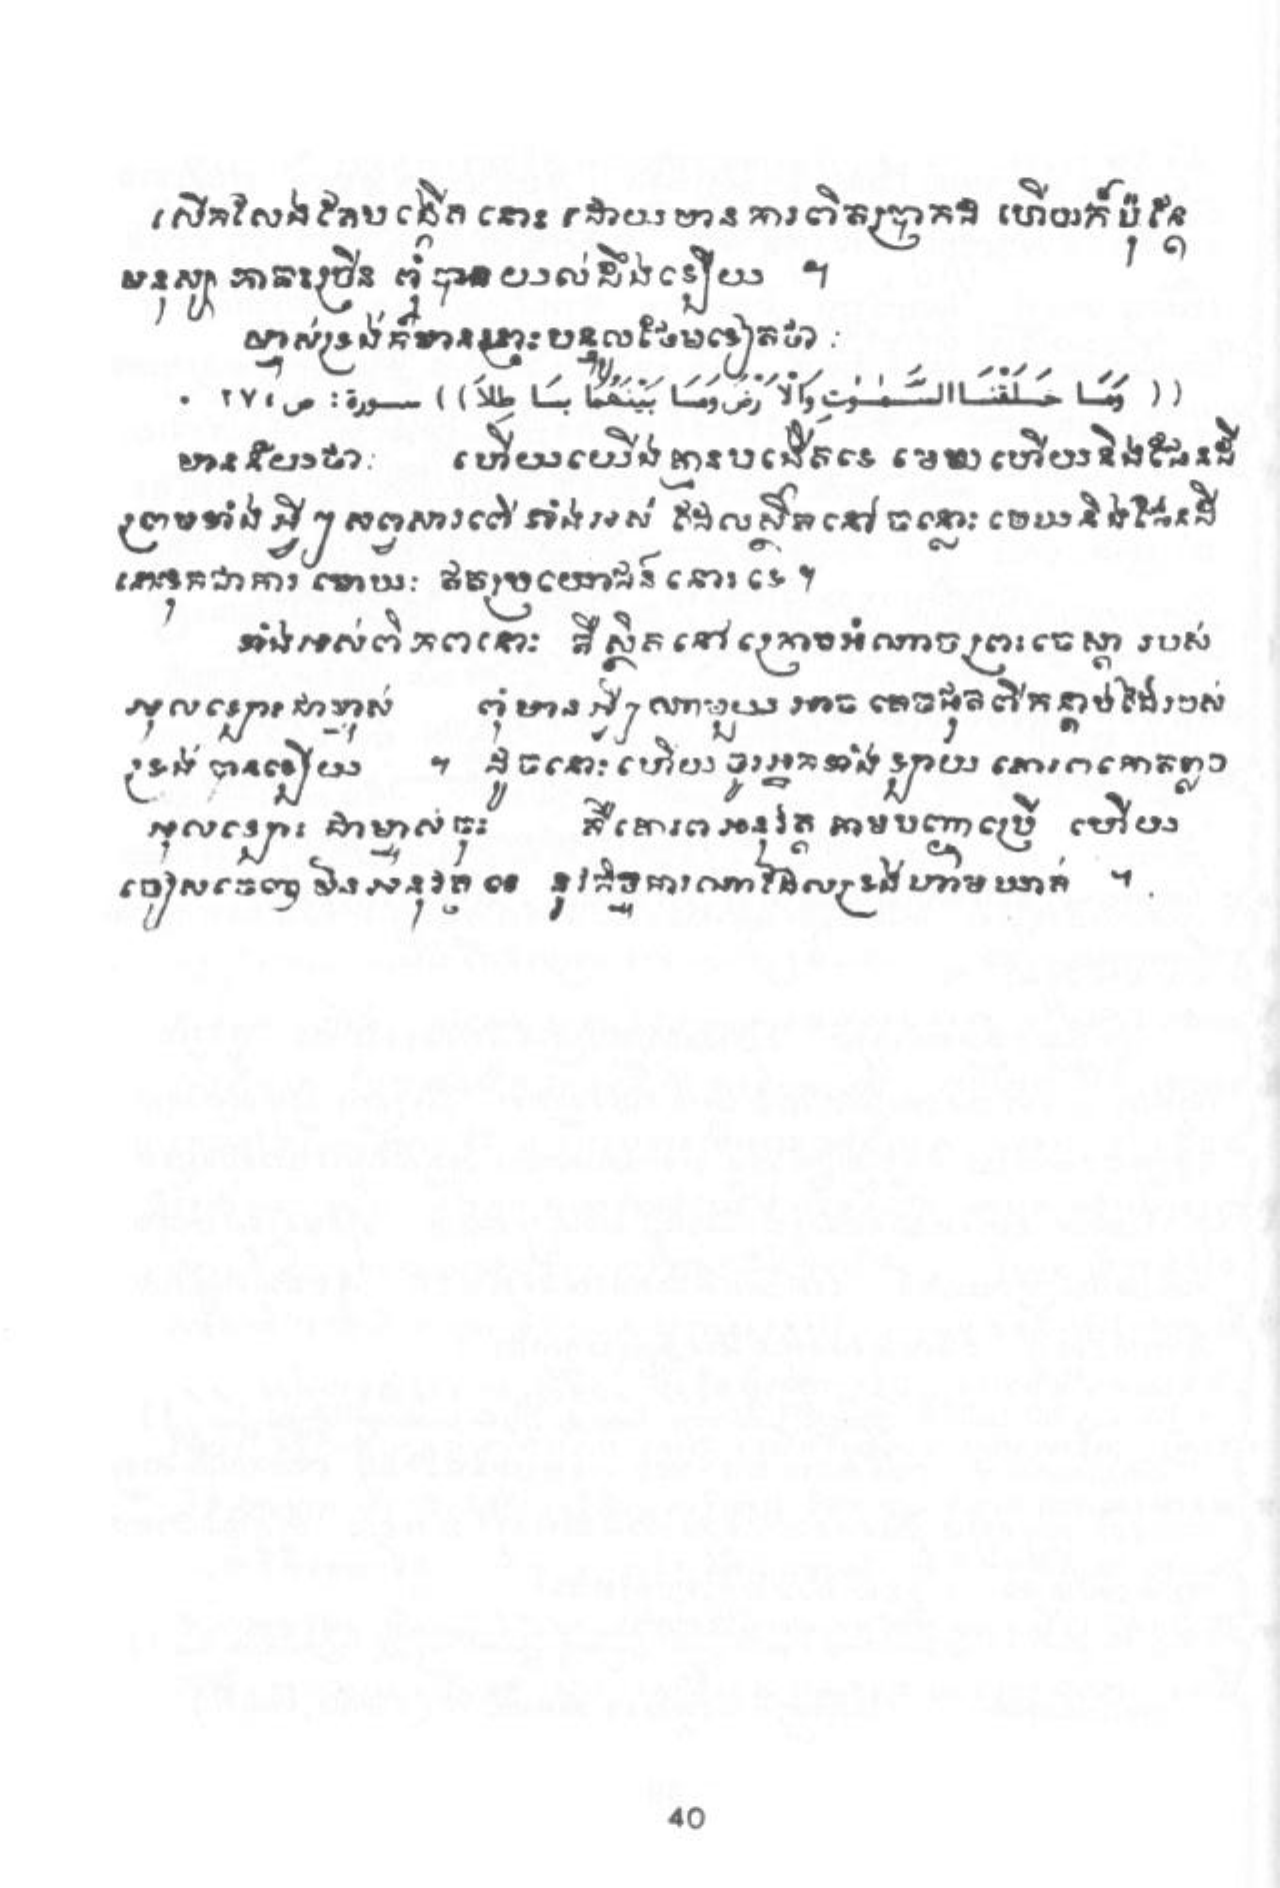 លើកលែងតែបង្កើតនោះ ដោយមានការពិតប្រាកដ ហើយក៏ប៉ុន្តែ
មនុស្ស ភាគច្រើន ពុំបានយល់ដឹងឡើយ ។
ម្ចាស់ទ្រង់ក៏មានព្រះបន្ទូលថែមទៀតថា :
(( وَمَا خَلَقْنَا السَّمٰوٰتِ وَالْأَرْضَ وَمَا بَيْنَهُمَا بَاطِلاً )) سورة : ص ، ٢٧ .
មានន័យថា: ហើយយើងគ្មានបង្កើតទេ មេឃ ហើយនិងផែនដី
ព្រមទាំងអ្វីៗសព្វសារពើ ទាំងអស់ ដែលស្ថិតនៅ ចន្លោះ មេឃនិងផែនដី
ទុកជាការ មោឃៈ ឥតប្រយោជន៍នោះទេ ។
ទាំងអស់ពិភពនោះ គឺស្ថិតនៅក្រោមអំណាចព្រះចេស្តា របស់
អុលឡោះជាម្ចាស់ ពុំមានអ្វីៗណាមួយ អាចគេចផុតពីកន្តាប់ដៃរបស់
ទ្រង់ បានឡើយ ។ ដូចនោះហើយ ចូរអ្នកទាំងឡាយ គោរពកោតខ្លាច
អុលឡោះ ជាម្ចាស់ចុះ គឺគោរពអនុវត្ត តាមបញ្ជាប្រើ ហើយ
ចៀសចេញ មិនអនុវត្ត នូវកិច្ចការណាដែលទ្រង់ហាមឃាត់ ។
40